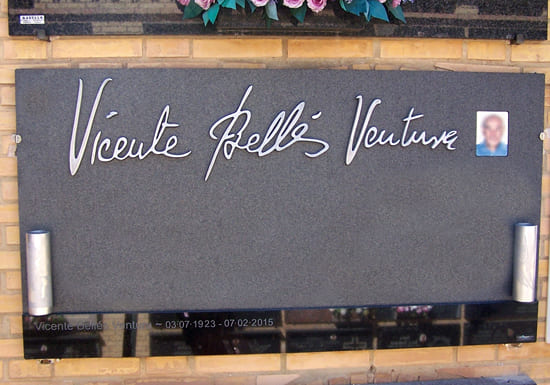 Vicente Bellés Ventura
Vicente Bellés Ventura ~ 03·07·1923 - 07·02·2015